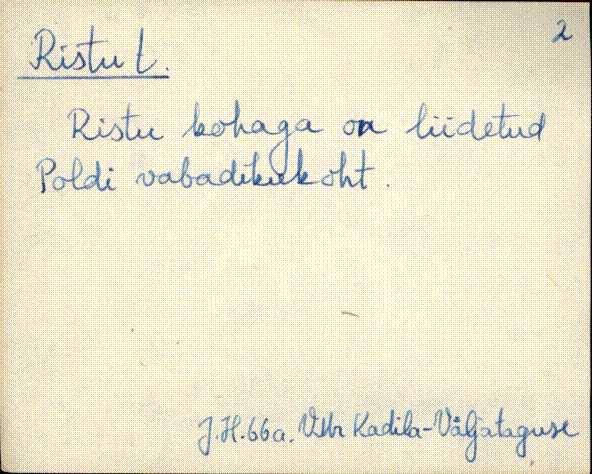 2
Ristu t.
Ristu kohaga on liidetud
Poldi vabadikukoht.
J.H.66a. VMr Kadila-Väljataguse